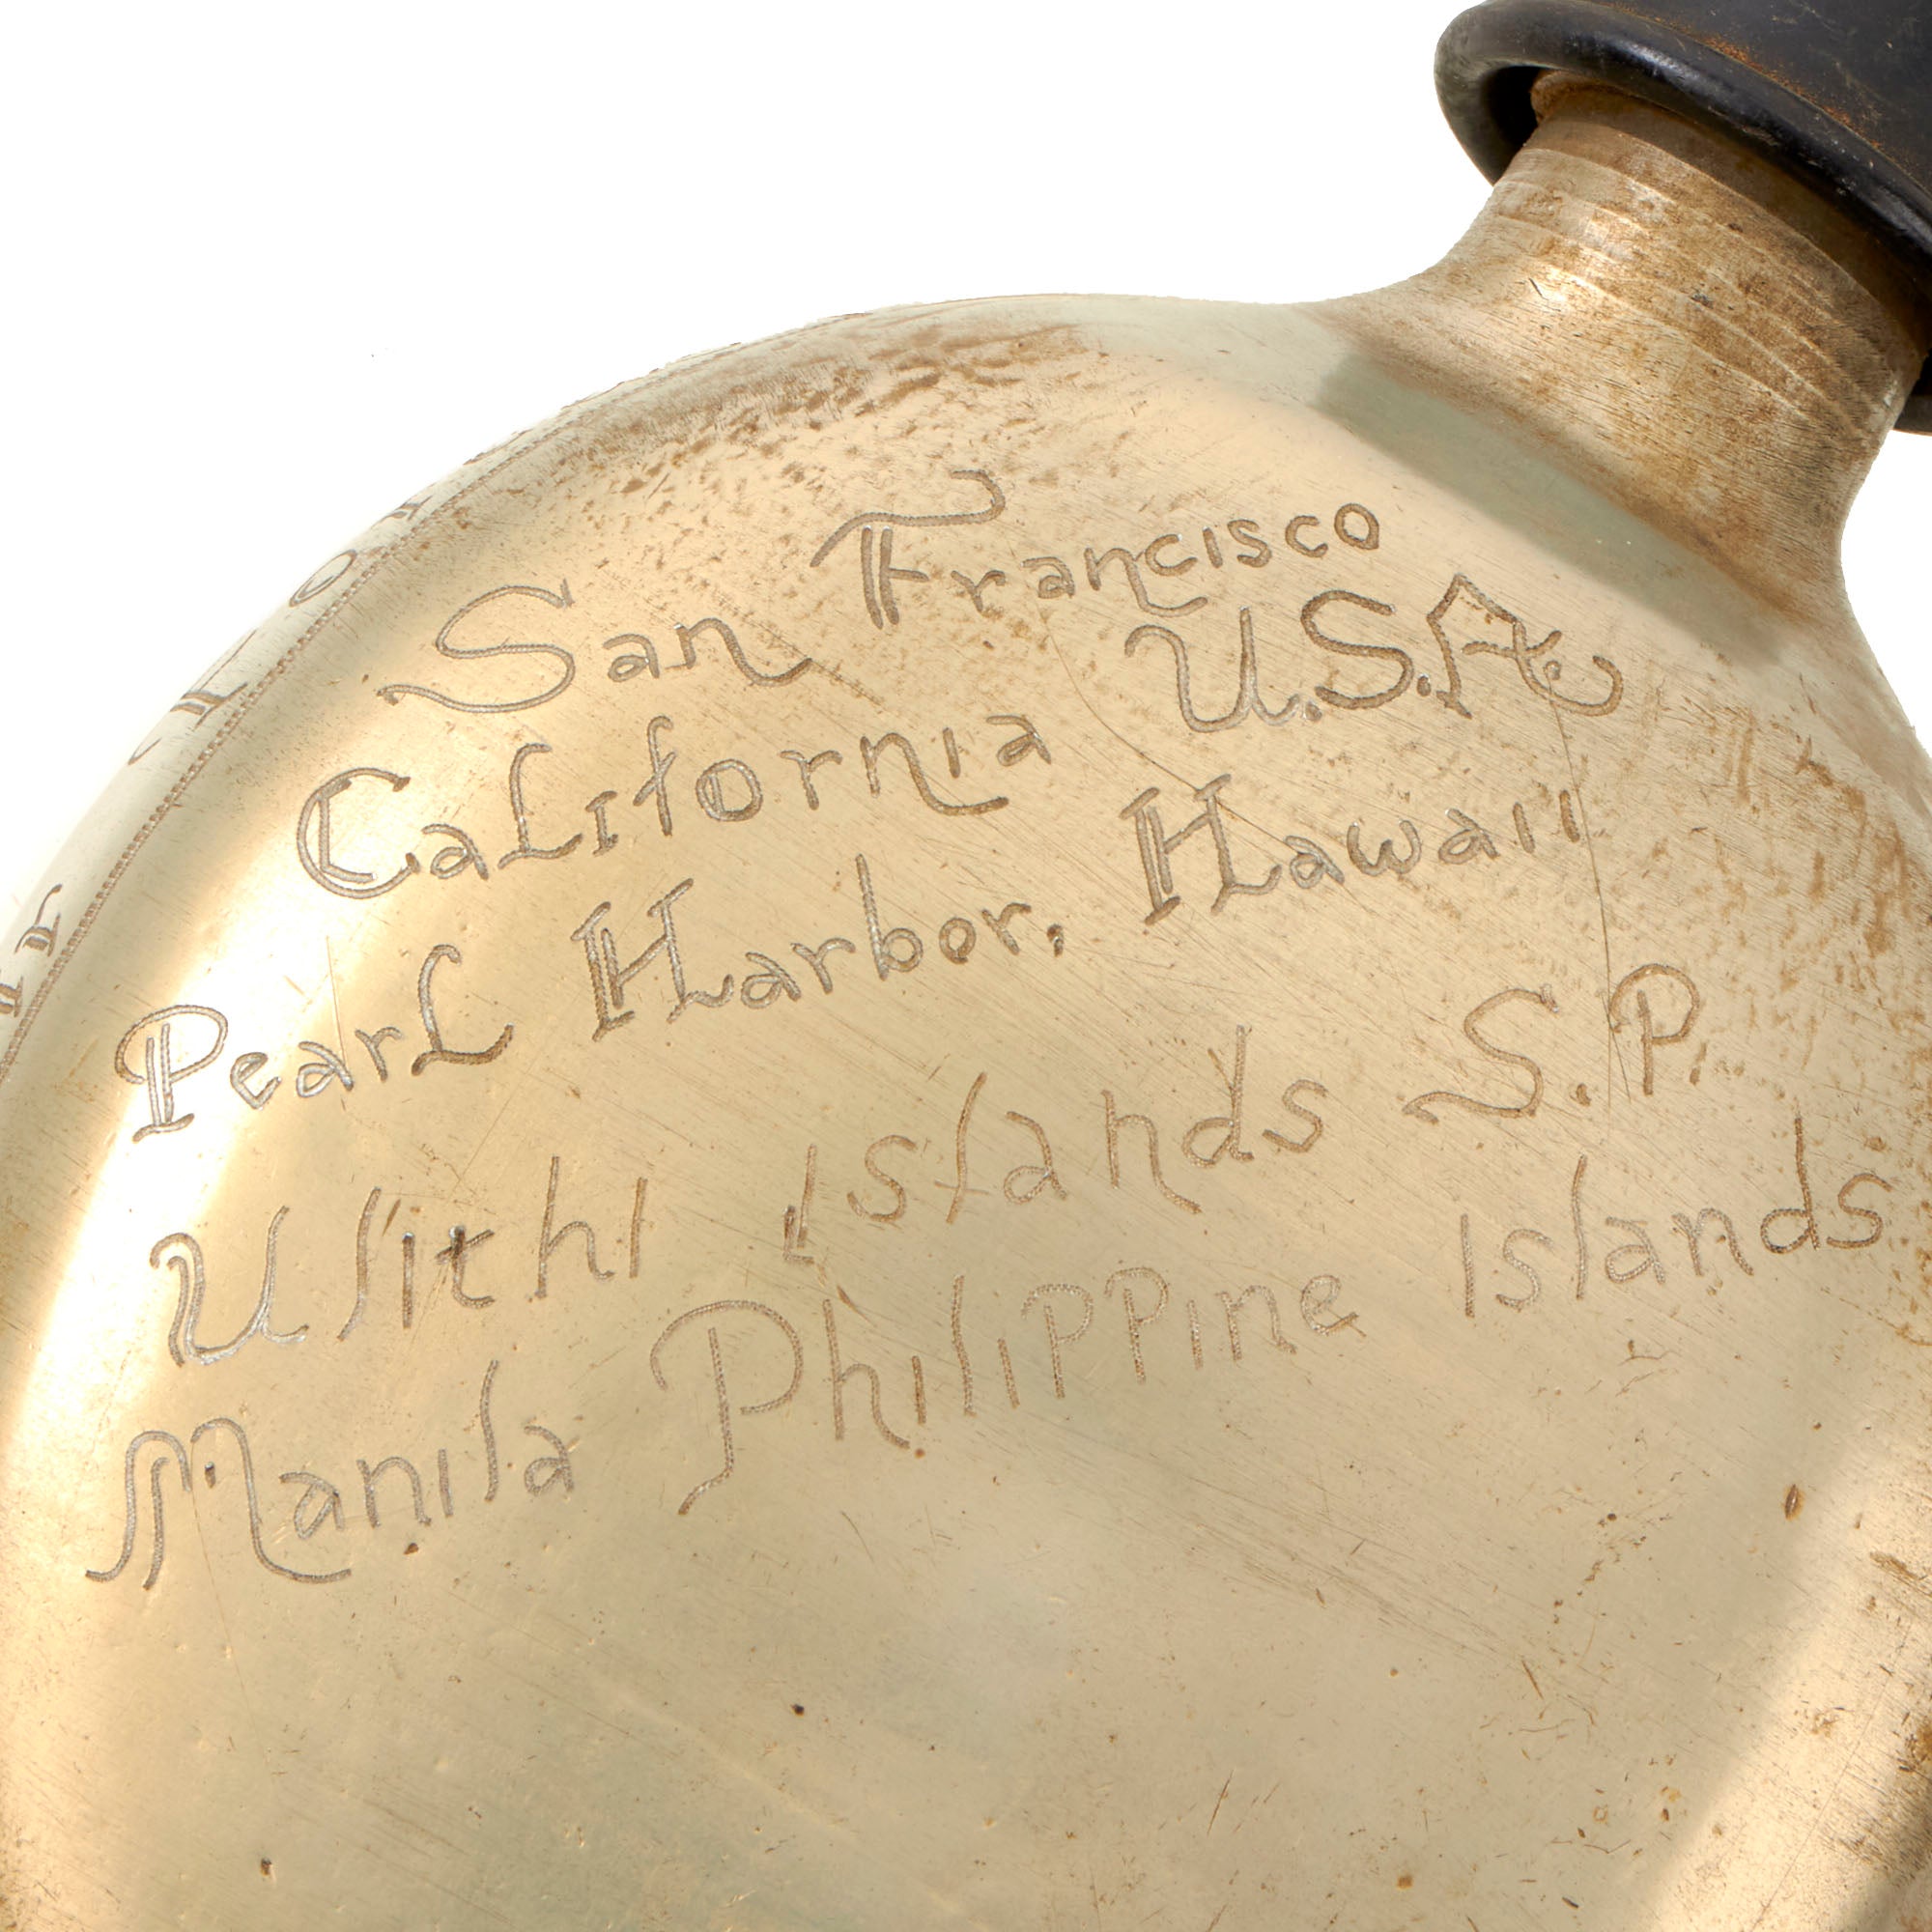 San Francisco
California U.S.A.
Pearl Harbor, Hawaii
Ulithi Islands S.P.
Manila Philippine Islands